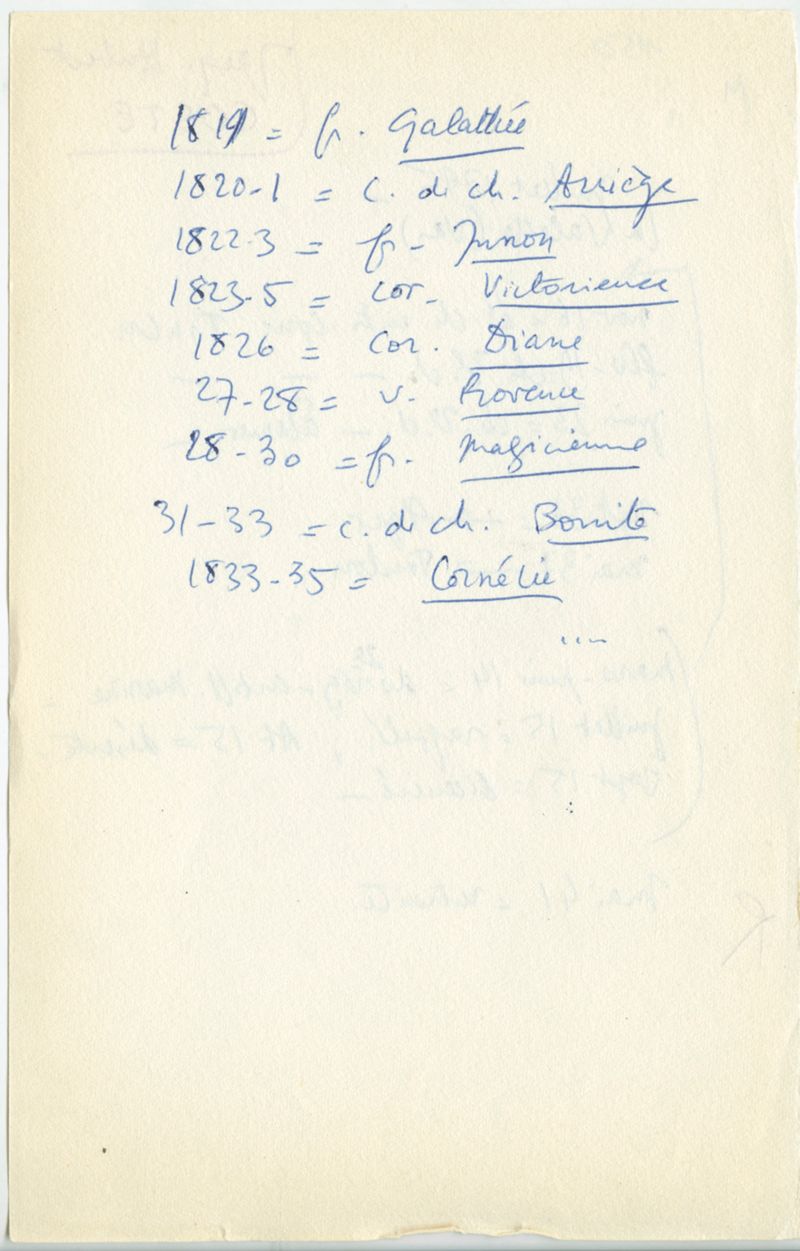 1819 = fr. Galathée
1820-1 = c. de ch. Arriège
1822-3 = fr - Junon
1823-5 = cor - Victorieuse
1826 = Cor. Diane
27-28 = v. Provence
28-30 = fr. Magicienne
31-33 = c. de ch. Bonite
1833-35 = Cornélie
....